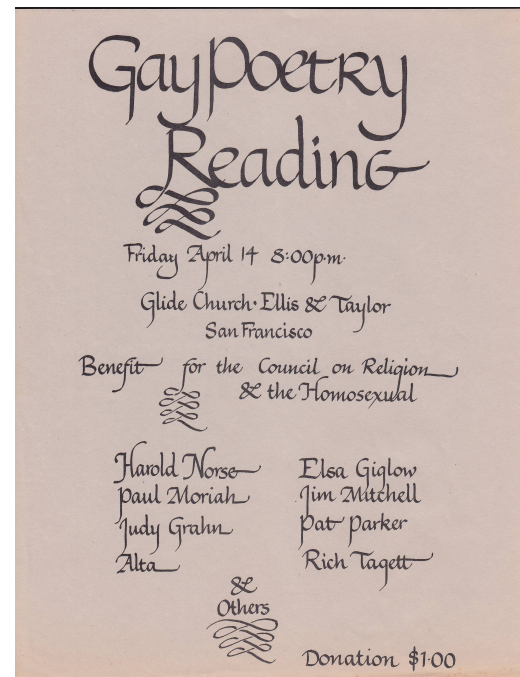 Gay Poetry
Reading
Friday April 14 8:00p.m.
Glide Church · Ellis & Taylor
San Francisco
Benefit for the Council on Religion
& the Homosexual
Harold Norse
Paul Moriah
Judy Grahn
Alta
Elsa Giglow
Jim Mitchell
Pat Parker
Rich Tagett
&
Others
Donation $1.00